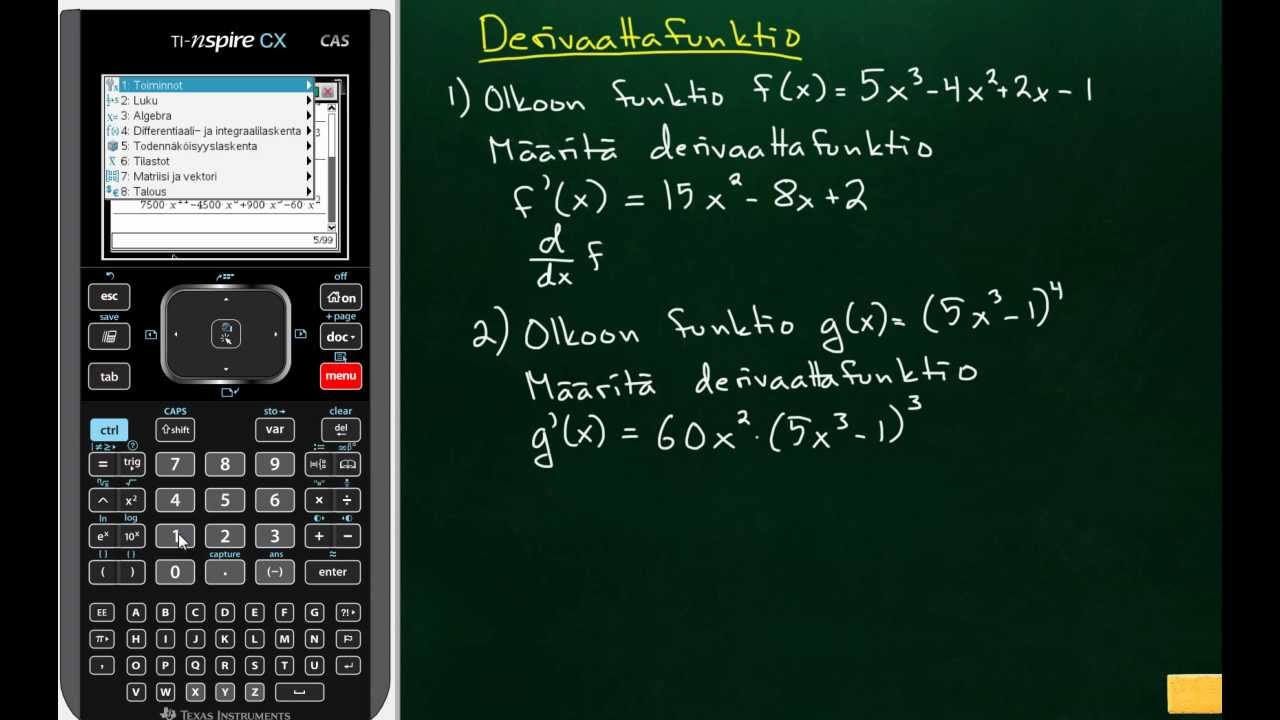 TI-nspire CX CAS
1: Toiminnot
2: Luku
3: Algebra
4: Differentiaali- ja integraalilaskenta
5: Todennäköisyyslaskenta
6: Tilastot
7: Matriisi ja vektori
8: Talous
5/99
off
esc
on
save
+ page
doc
tab
menu
CAPS
sto→
clear
ctrl
⇧shift
var
del
= trig 7 8 9
^ x² 4 5 6 × ÷
ln log
eˣ 10ˣ 1 2 3 + −
[ ] { } capture ans ≈
( ) 0 . (−) enter
EE A B C D E F G ?!▸
π▸ H I J K L M N
, O P Q R S T U
V W X Y Z
TEXAS INSTRUMENTS
Derivaattafunktio
1) Olkoon funktio f(x) = 5x³ - 4x² + 2x - 1
Määritä derivaattafunktio
f'(x) = 15x² - 8x + 2
d/dx f
2) Olkoon funktio g(x) = (5x³ - 1)⁴
Määritä derivaattafunktio
g'(x) = 60x² · (5x³ - 1)³